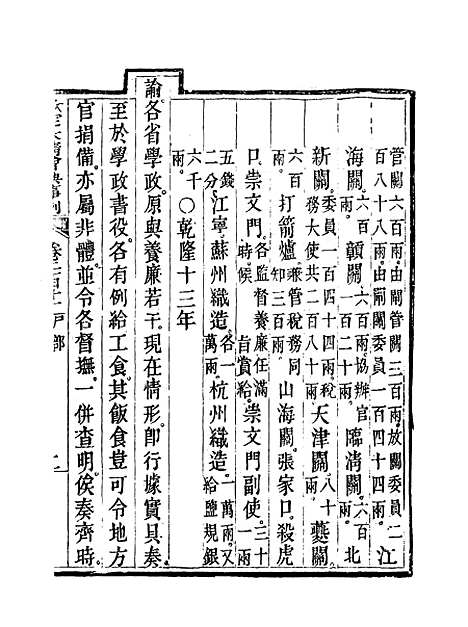 管關六百兩。由閘管關三百兩。放關委員二百八十八兩。由閘關委員一百四十四兩。江
海關。六百兩。贛關。六百兩。協辦官一百二十兩。臨清關。六百兩。北
新關。委員一百四十四兩。稅務大使共二百八十兩。天津關。八十兩。夔關。
六百兩。打箭爐。兼管稅務同知三百兩。山海關。張家口。殺虎
口。崇文門。各監督養廉任滿時。候旨賞給。崇文門副使。三十一兩
五錢二分。江寧蘇州織造。各一萬兩。杭州織造。一萬兩。又給鹽規銀
六千兩。○乾隆十三年
諭。各省學政。原與養廉若干。現在情形。即行據實具奏。
至於學政書役。各有例給工食。其飯食豈可令地方
官捐備。亦屬非體。並令各督撫。一併查明。俟奏齊時。
戶部